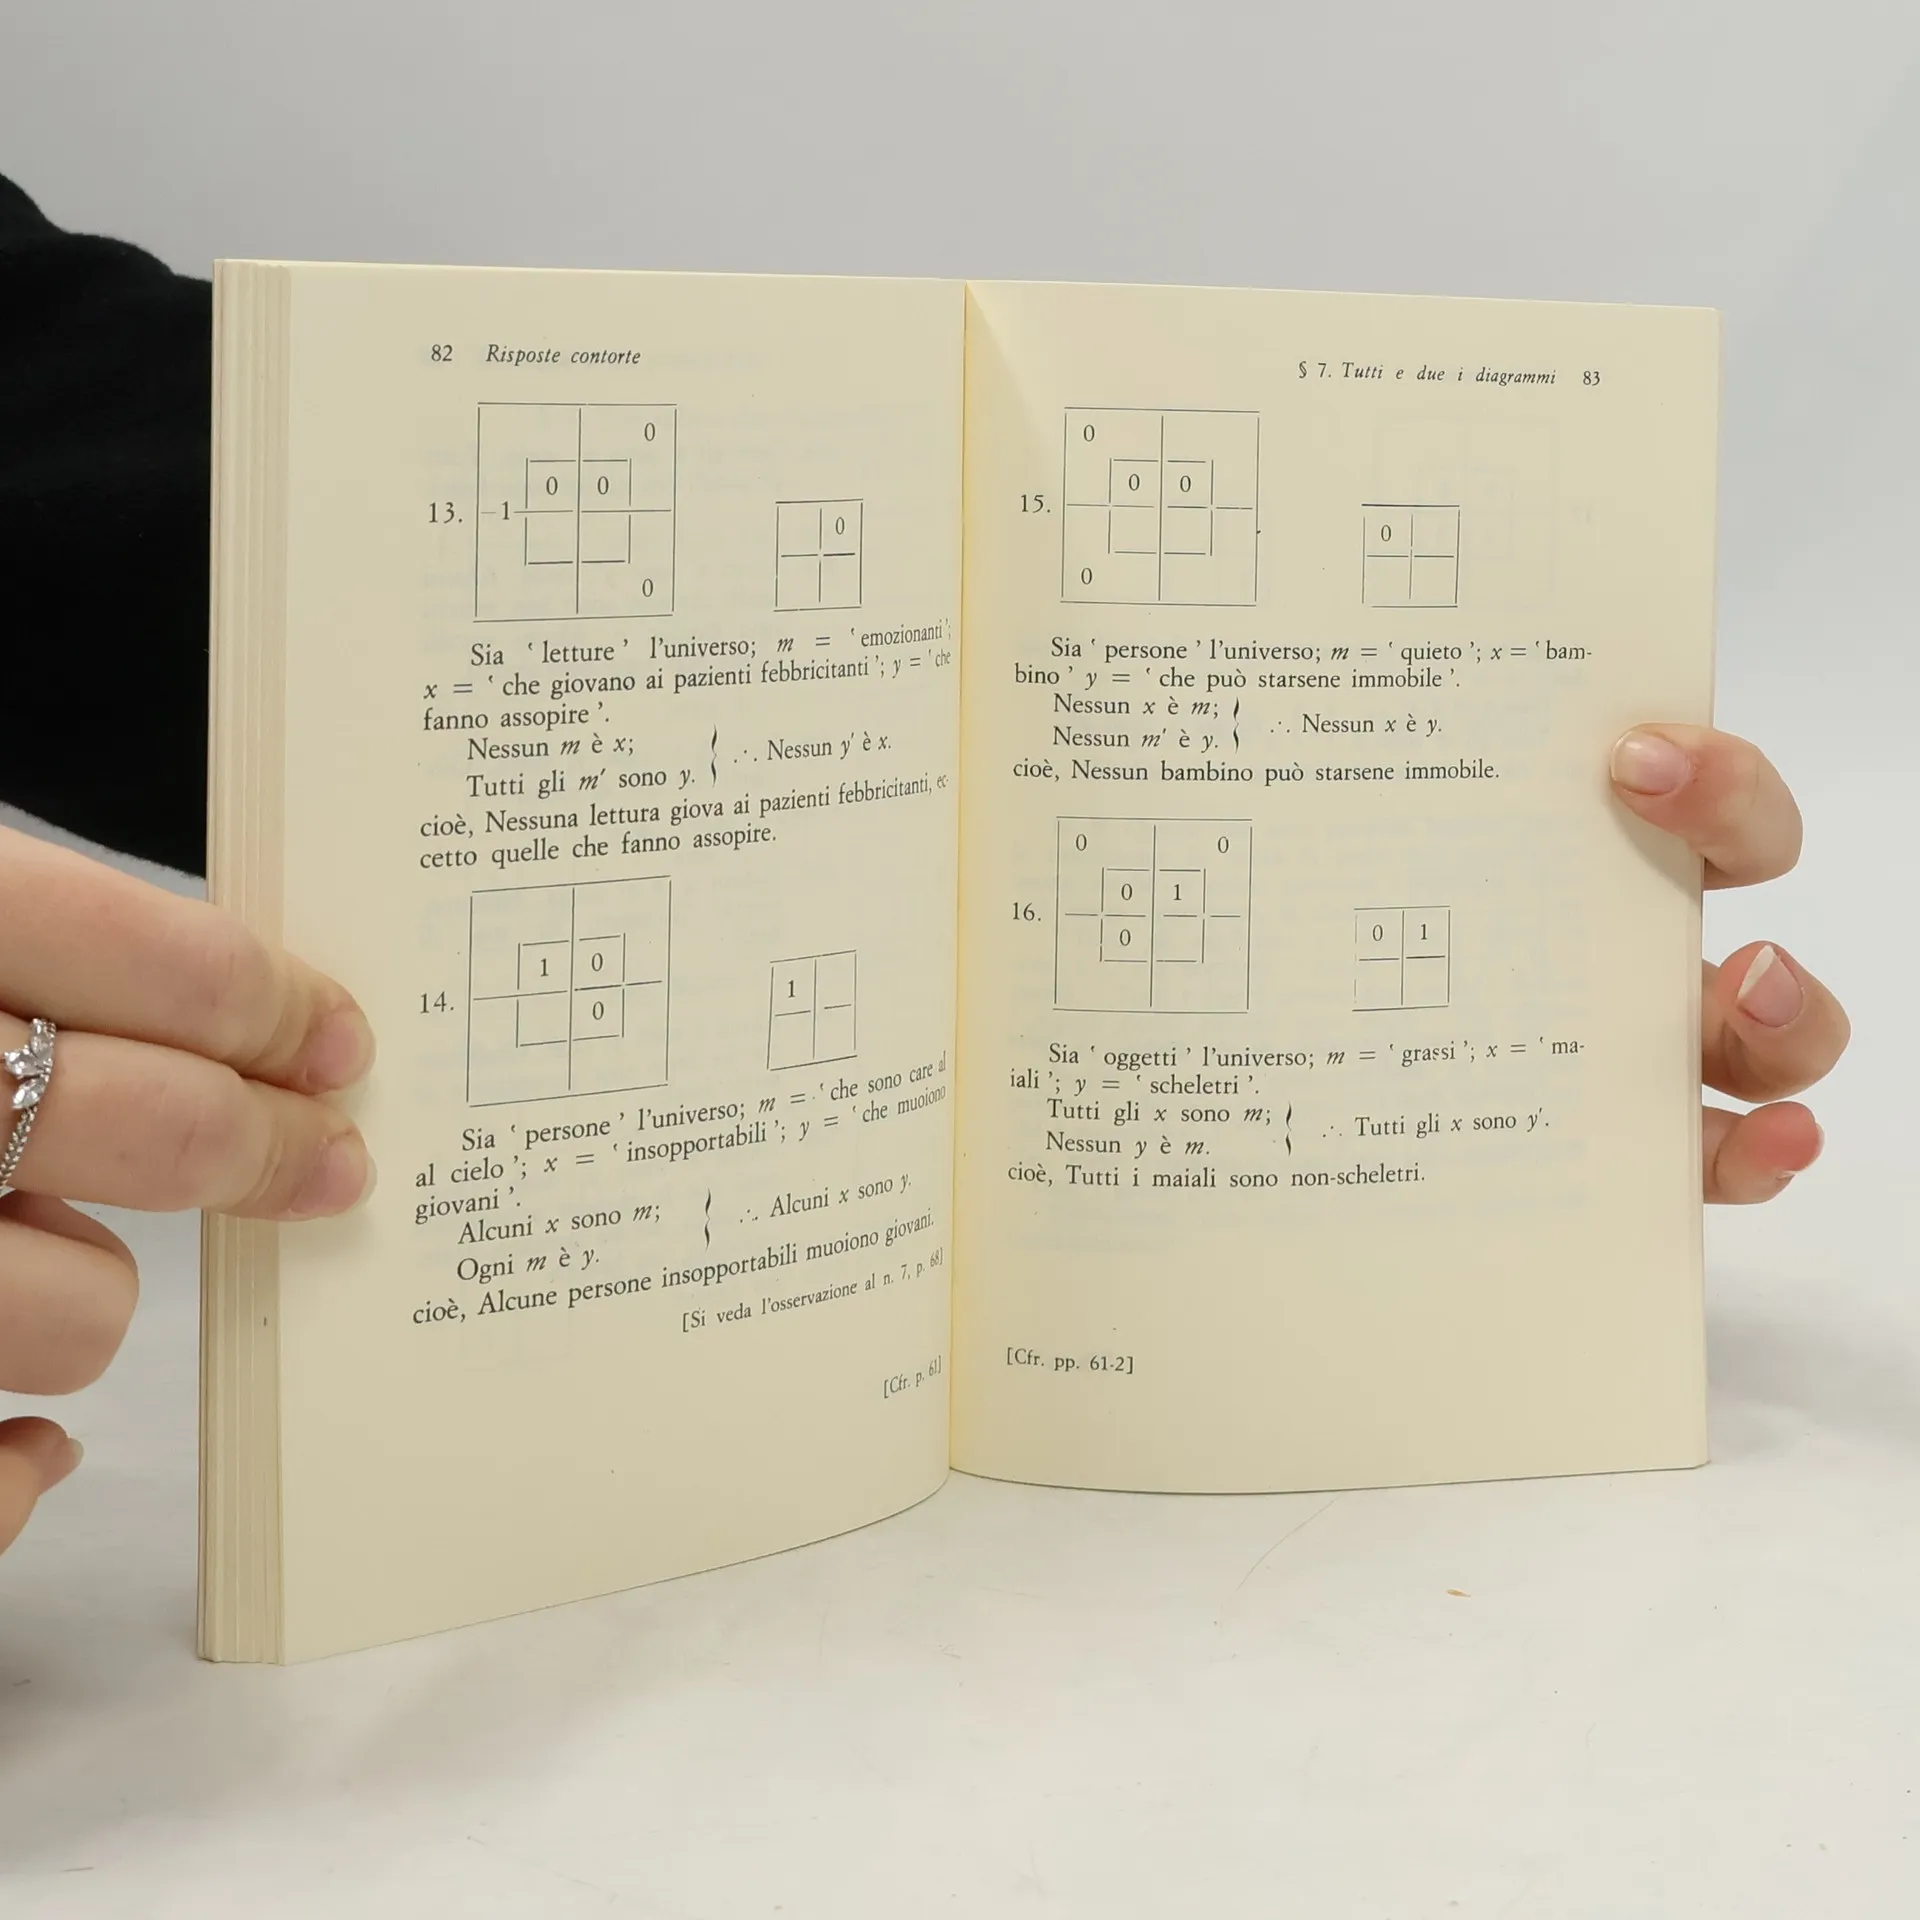 82 Risposte contorte
0
0 0
13. 1
0
0
Sia ‘ letture ’ l’universo; m = ‘ emozionanti ’;
x = ‘ che giovano ai pazienti febbricitanti ’; y = ‘ che
fanno assopire ’.
Nessun m è x;
Tutti gli m′ sono y. } ∴ Nessun y′ è x.
cioè, Nessuna lettura giova ai pazienti febbricitanti, ec-
cetto quelle che fanno assopire.
1 0
14.
0
1
Sia ‘ persone ’ l’universo; m = ‘ che sono care al
al cielo ’; x = ‘ insopportabili ’; y = ‘ che muoiono
giovani ’.
Alcuni x sono m;
Ogni m è y. } ∴ Alcuni x sono y.
cioè, Alcune persone insopportabili muoiono giovani.
[Si veda l’osservazione al n. 7, p. 68]
[Cfr. p. 61]
§ 7. Tutti e due i diagrammi 83
0
0 0
15.
0
0
Sia ‘ persone ’ l’universo; m = ‘ quieto ’; x = ‘ bam-
bino ’ y = ‘ che può starsene immobile ’.
Nessun x è m;
Nessun m′ è y. } ∴ Nessun x è y.
cioè, Nessun bambino può starsene immobile.
0 0
0 1
16.
0
0 1
Sia ‘ oggetti ’ l’universo; m = ‘ grassi ’; x = ‘ ma-
iali ’; y = ‘ scheletri ’.
Tutti gli x sono m;
Nessun y è m. } ∴ Tutti gli x sono y′.
cioè, Tutti i maiali sono non-scheletri.
[Cfr. pp. 61-2]